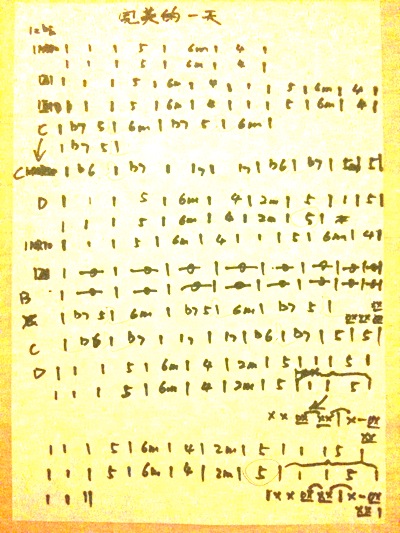 完美的一天
1=bE
INTRO | 1 | 1 | 5 | 6m | 4 |
| 1 | 1 | 5 | 6m | 4 |
| 1 | 1 | 5 | 6m | 4 | 1 | 1 | 5 | 6m | 4 |
| 1 | 1 | 5 | 6m | 4 | 1 | 1 | 5 | 6m | 4 |
C | b7 5 | 6m | b7 5 | 6m |
| b7 5 |
C | b6 | b7 | 1 | 17 | 17 | b6 | b7 | 5 | 5 |
D | 1 | 1 | 5 | 6m | 4 | 2m | 5 | 1 | 5 |
| 1 | 1 | 5 | 6m | 4 | 2m | 5 |
INTRO | 1 | 1 | 5 | 6m | 4 | 1 | 1 | 5 | 6m | 4 |
B
| b7 5 | 6m | b7 5 | 6m | b7 5 |
C | b6 | b7 | 1 | 17 | b6 | b7 | 5 | 5 |
D | 1 | 1 | 5 | 6m | 4 | 2m | 5 | 1 | 5 |
| 1 | 1 | 5 | 6m | 4 | 2m | 5 | 1 | 5 |
| 1 | 1 | 5 | 6m | 4 | 2m | 5 | 1 | 5 |
| 1 | 1 | 5 | 6m | 4 | 2m | 5 | 1 | 5 |
| 1 | 1 ||